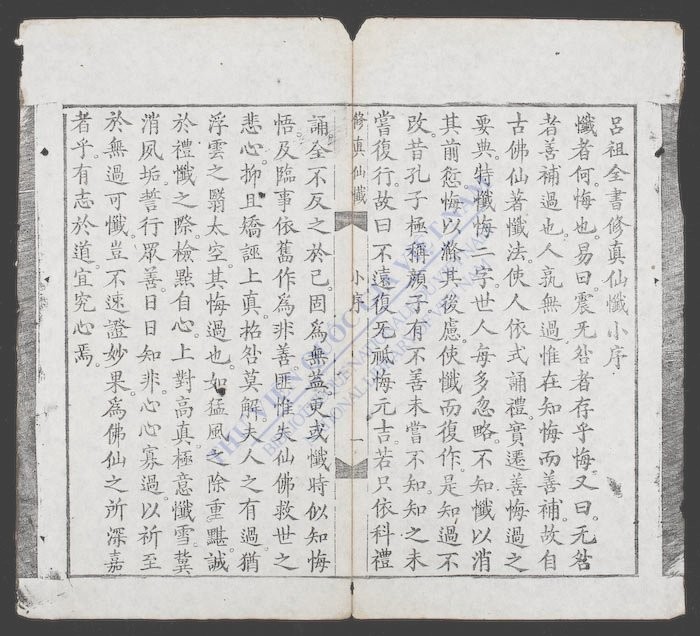 呂祖全書修真仙懺小序
懺者何。悔也。易曰。震无咎者存乎悔。又曰。无咎
者善補過也。人孰無過。惟在知悔而善補。故自
古佛仙著懺法。使人依式誦禮。實遷善悔過之
要典。特懺悔二字。世人每多忽略。不知懺以消
其前愆。悔以滌其後慮。使懺而復作。是知過不
改。昔孔子極稱顏子有不善未嘗不知。知之未
嘗復行。故曰不遠復无祗悔元吉。若只依科禮
修真仙懺
小序
一
誦。全不反之於己。固為無益。更或懺時似知悔
悟。及臨事依舊作為非善。匪惟失仙佛救世之
悲心。抑且矯誣上真。招咎莫解。夫人之有過。猶
浮雲之翳太空。其悔過也。如猛風之除重黮。誠
於禮懺之際。檢點自心。上對高真。極意懺雪。冀
消夙垢。誓行眾善。日日知非。心心寡過。以祈至
於無過可懺。豈不速證妙果。為佛仙之所深嘉
者乎。有志於道。宜究心焉。
THƯ VIỆN QUỐC GIA VIỆT NAM
BIBLIOTHEQUE NATIONALE DU VIETNAM
NATIONAL LIBRARY OF VIETNAM